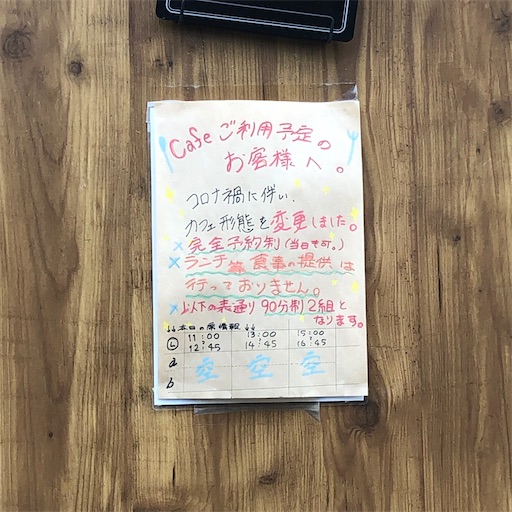 Cafe ご利用予定の
お客様へ。
コロナ禍に伴い、
カフェ形態を変更しました。
×完全予約制(当日も可。)
×ランチ等食事の提供は
行っておりません。
×以下の表通り90分制2組と
なります。
↓↓本日の席情報↓↓
11:00 13:00 15:00
12:45 14:45 16:45
a 空 空 空
b